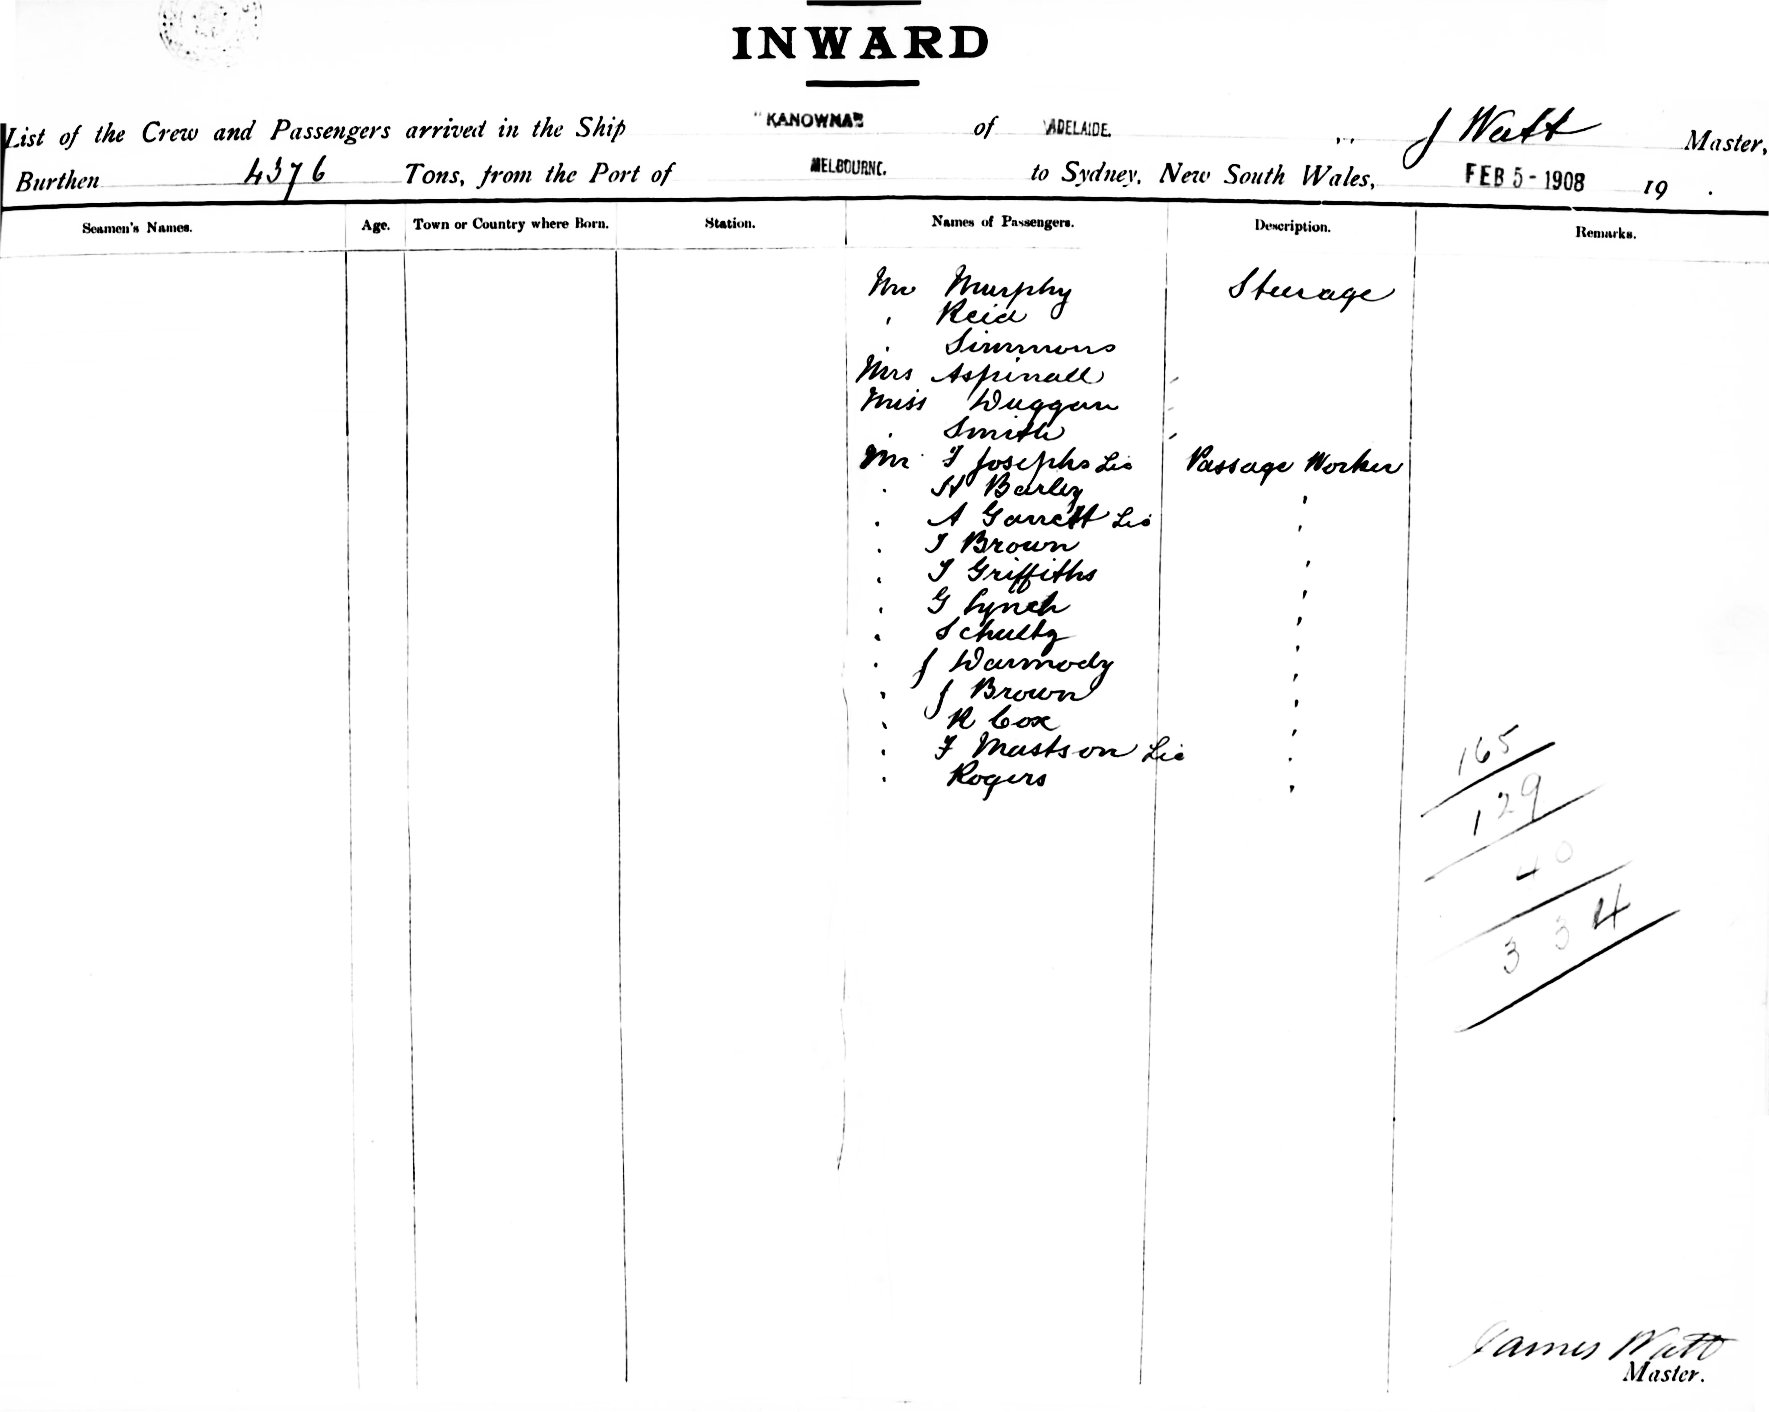 INWARD
List of the Crew and Passengers arrived in the Ship "KANOWNA" of ADELAIDE. ,, J Watt Master,
Burthen 4376 Tons, from the Port of MELBOURNE. to Sydney, New South Wales, FEB 5 - 1908 19 .
Seamen's Names. Age. Town or Country where Born. Station. Names of Passengers. Description. Remarks.
Mr Murphy Steerage
' Reid
' Simmons
Mrs Aspinall
Miss Duggan
' Smith
Mr Josephs Passage Worker
' H Barley '
' A Garrett '
' Brown
' Griffiths '
' G Lynch '
' Schultz '
' J Warmody '
' J Brown '
' R Cox '
' F Mastson '
' Rogers '
165
129
40
334
James Watt
Master.